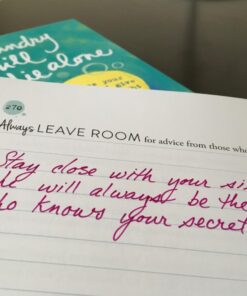 undry
will
ie alone
270
Always LEAVE ROOM for advice from those who
Stay close with your si
will always be the
o knows your secret